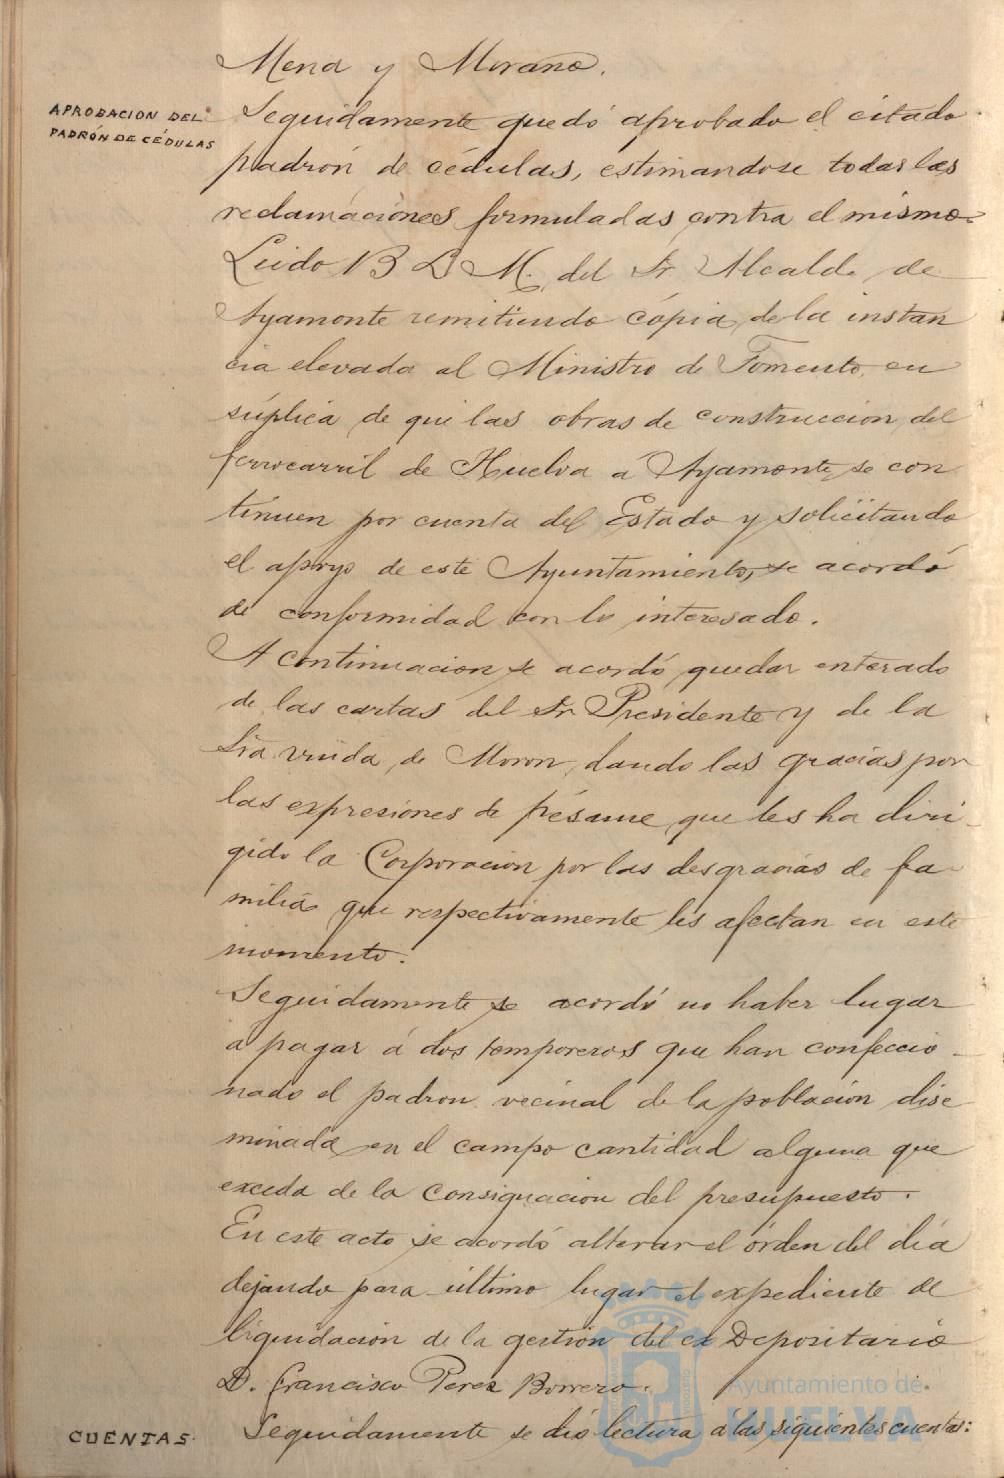 Mena y Morano.
APROBACION DEL
PADRÓN DE CÉDULAS
Seguidamente quedó aprobado el citado
padrón de cédulas, estimandose todas las
reclamaciones formuladas contra el mismo.
Leido B L M. del Sr Alcalde de
Ayamonte remitiendo cópia de la instan
cia elevada al Ministro de Fomento en
súplica de que las obras de construccion del
ferrocarril de Huelva á Ayamonte, se con
tinuen por cuenta del Estado y solicitando
el apoyo de este Ayuntamiento, se acordó
de conformidad con lo interesado.
A continuacion se acordó quedar enterado
de las cartas del Sr Presidente y de la
Sra viuda de Moron, dando las gracias por
las expresiones de pésame que les ha diri-
gido la Corporacion por las desgracias de fa-
milia que respectivamente les afectan en este
momento.
Seguidamente se acordó no haber lugar
a pagar á dos temporeros que han confeccio-
nado el padron vecinal de la poblacion dise
minada en el campo cantidad alguna que
exceda de la consignacion del presupuesto.
En este acto se acordó alterar el órden del dia
dejando para último lugar el expediente de
liquidacion de la gestión del ex Depositario
D. Francisco Perez Borrero.
CUENTAS.
Seguidamente se dió lectura a las siguientes cuentas:
Ayuntamiento de
HUELVA